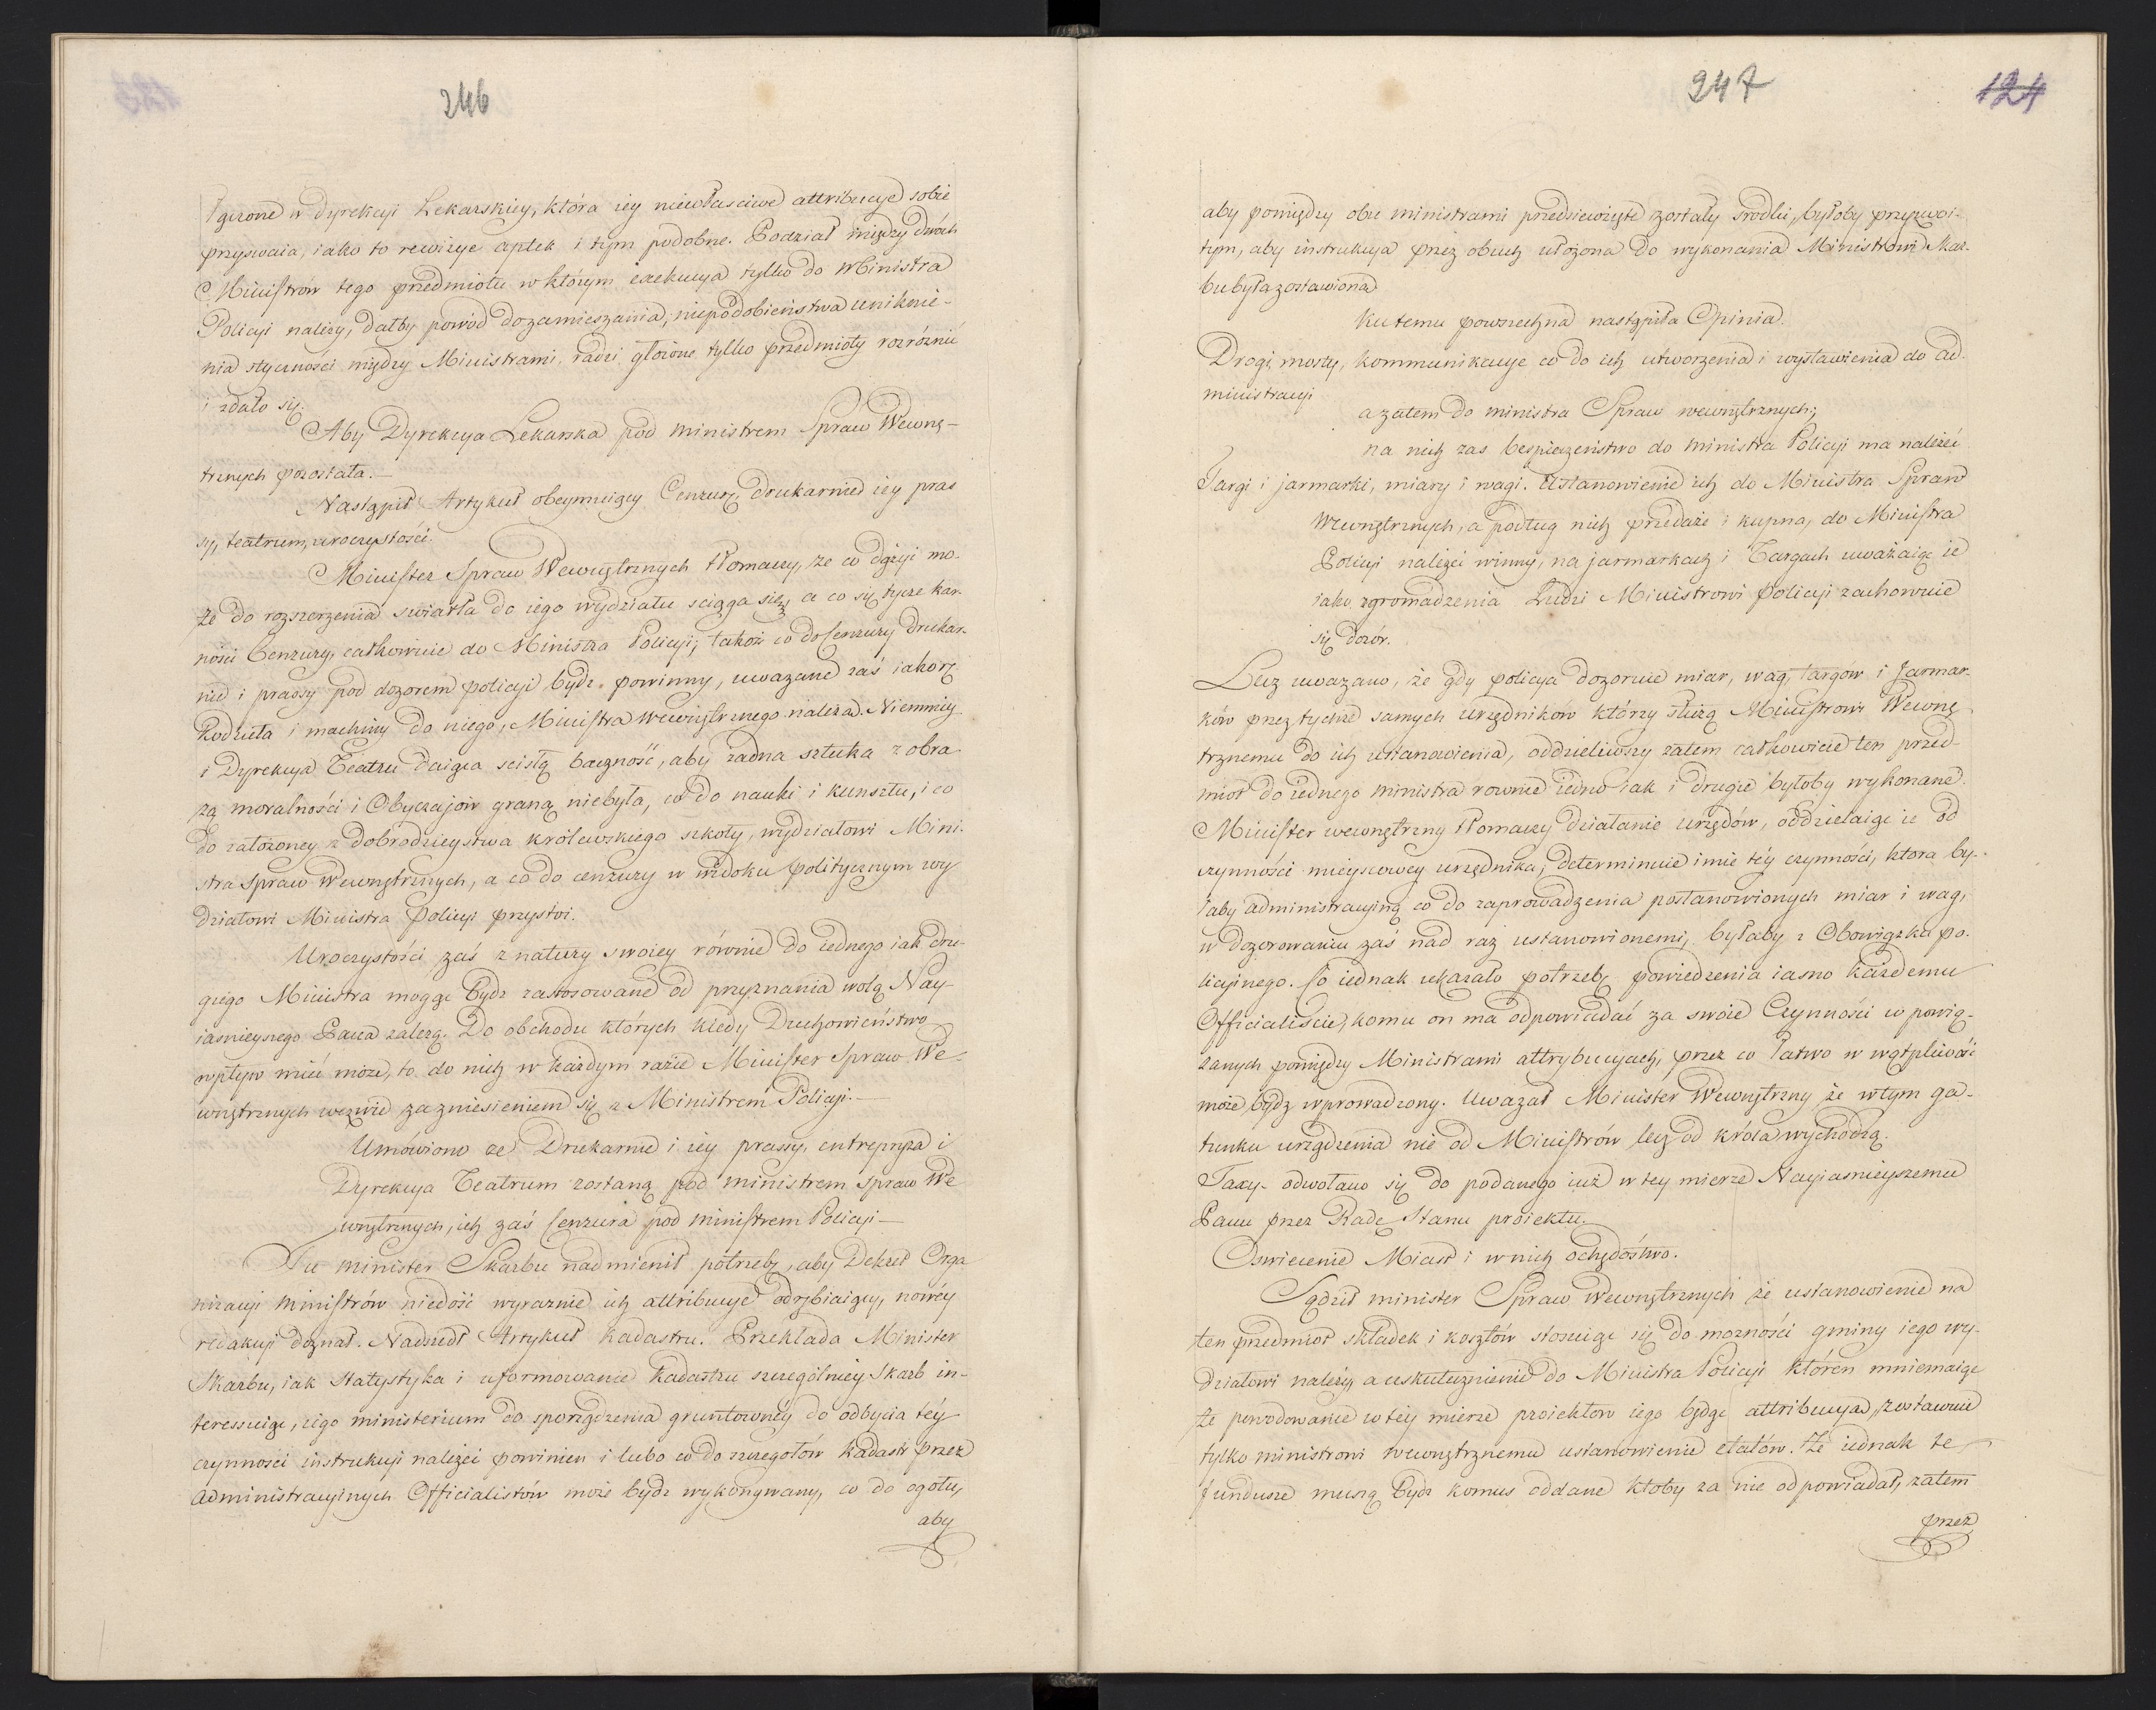 246
łączone w Dyrekcyi Lekarskiey, która iey niewłaściwe attribucye sobie
przyswaia, iako to rewizye aptek i tym podobne. Podział między dwóch
Ministrów tego przedmiotu w którym exekucya tylko do Ministra
Policyi należy, dałby powód do zamieszania, niepodobieństwa uniknie-
nia styczności między Ministrami, radzi główne tylko przedmioty rozróżnić
i zdało się.
Aby Dyrekcya Lekarska pod Ministrem Spraw Wewnę-
trznych pozostała.—
Nastąpił Artykuł obeymuiący Cenzurę, drukarnie iey pras
sy, teatrum, uroczystości.
Minister Spraw Wewnętrznych tłomaczy, że co dążyć mo-
że do rozszerzenia światła do iego wydziału ściąga się, a co się tycze kar-
ności Cenzury, całkowicie do Ministra Policyi; takoż co do Cenzury drukar-
nie i prassy pod dozorem policyi bydź powinny, uważane zaś iako rę
kodzieła i machiny do niego, Ministra Wewnętrznego należą. Niemniey
i Dyrekcya Teatru daiąca scisłą baczność, aby żadna sztuka z obra
zą moralności i Obyczajów graną niebyła, co do nauki i kunsztu, i co
do założoney z dobrodzieystwa królewskiego szkoły, wydziałowi Mini-
stra Spraw Wewnętrznych, a co do cenzury w widoku politycznym wy
działowi Ministra Policyi przystoi.
Uroczystości zaś z natury swoiey równie do iednego iak dru-
giego Ministra mogące bydź zastosowane od przyznania wolą Nay-
iaśnieyszego Pana zależą. Do obchodu których kiedy Duchowieństwo
wpływ mieć może, to do nich w każdym razie Minister Spraw We-
wnętrznych wezwie za zniesieniem się z Ministrem Policyi.—
Umówiono że Drukarnie i iey prassy, entrepryza i
Dyrekcya Teatrum zostaną pod ministrem spraw We
wnętrznych, ich zaś Cenzura pod ministrem Policyi—
Tu minister Skarbu nadmienił potrzebę, aby Dekret Orga
nizacyi Ministrów niedość wyraźnie ich attribucye odrębiaiący, nowéy
redakcyi doznał. Nadszedł Artykuł kadastru. Przekłada Minister
Skarbu, iak statystyka i uformowanie Kadastru szczególniey Skarb in-
teressuiąc, iego ministerium do sporządzenia gruntowney do odbycia téy
czynności instrukcyi należeć powinien i lubo co do szczegołów kadastr przez
administracyinych Officialistów może bydź wykonywany, co do ogółu,
aby
247
124
aby pomiędzy obie ministrami przedsiewzięte zostały środki, byłoby przyzwoi-
tym, aby instrukcya przez obuch ułożona do wykonania Ministrowi Skar-
bu była zostawiona
Ku temu powszechna nastąpiła Opinia.
Drogi, mosty, kommunikacye co do ich utworzenia i wystawienia do ad-
ministracyi
a zatem do ministra Spraw wewnętrznych;
na nich zas bespieczeństwo do ministra Policyi ma należeć
Targi i jarmarki, miary i wagi. Ustanowienie ich do Ministra Spraw
Wewnętrznych, a podług nich przedaże i kupna, do Ministra
Policyi należeć winny, na jarmarkach i Targach uważaiąc ie
iako zgromadzenia Ludzi Ministrowi policyi zachowuie
się dozór.
Lecz uważano, że gdy policya dozoruie miar, wag, targów i Jarmar-
ków przez tychże samych urzędników którzy służą Ministrowi Wewnę
trznemu do ich ustanowienia, oddzieliwszy zatem całkowicie ten przed-
miot do iednego ministra równie iedno iak i drugie byłoby wykonane.
Minister wewnętrzny tłomaczy działanie urzędów, oddzielaiąc ie od
czynności mieyscowey urzędnika, determinuie imie téy czynności, ktora by-
łaby administracyiną co do zaprowadzenia postanowionych miar i wag,
w dozorowaniu zaś nad raz ustanowionemi, byłaby z Obowiązku po-
licyinego. Co iednak ukazało potrzebę powiedzenia iasno każdemu
Officialiście, komu on ma odpowiadać za swoie Czynności w powią-
zanych pomiędzy Ministrami attrybucyach, przez co łatwo w wątpliwość
może bydź wprowadzony. Uważał Minister Wewnętrzny że w tym ga-
tunku urządzenia nie od Ministrów lecz od króla wychodzą.
Taxy- odwołano się do podanego iuż w tey mierze Nayiaśnieyszemu
Panu przez Radę Stanu proiektu.
Oswiecenie Miast i w nich ochędóstwo.
Sądził minister Spraw Wewnętrznych że ustanowienie na
ten przedmiot składek i kosztów stosuiąc się do możności gminy iego wy-
działowi należy, a uskutecznienie do Ministra Policyi któren mniemaiąc
że powodowanie w téy mierze proiektów iego będąc attribucyą, zostawuie
tylko ministrowi wewnętrznemu ustanowienie etatów. Że iednak te
fundusze muszą bydź komus oddane ktoby za nie odpowiadał, zatem
przez